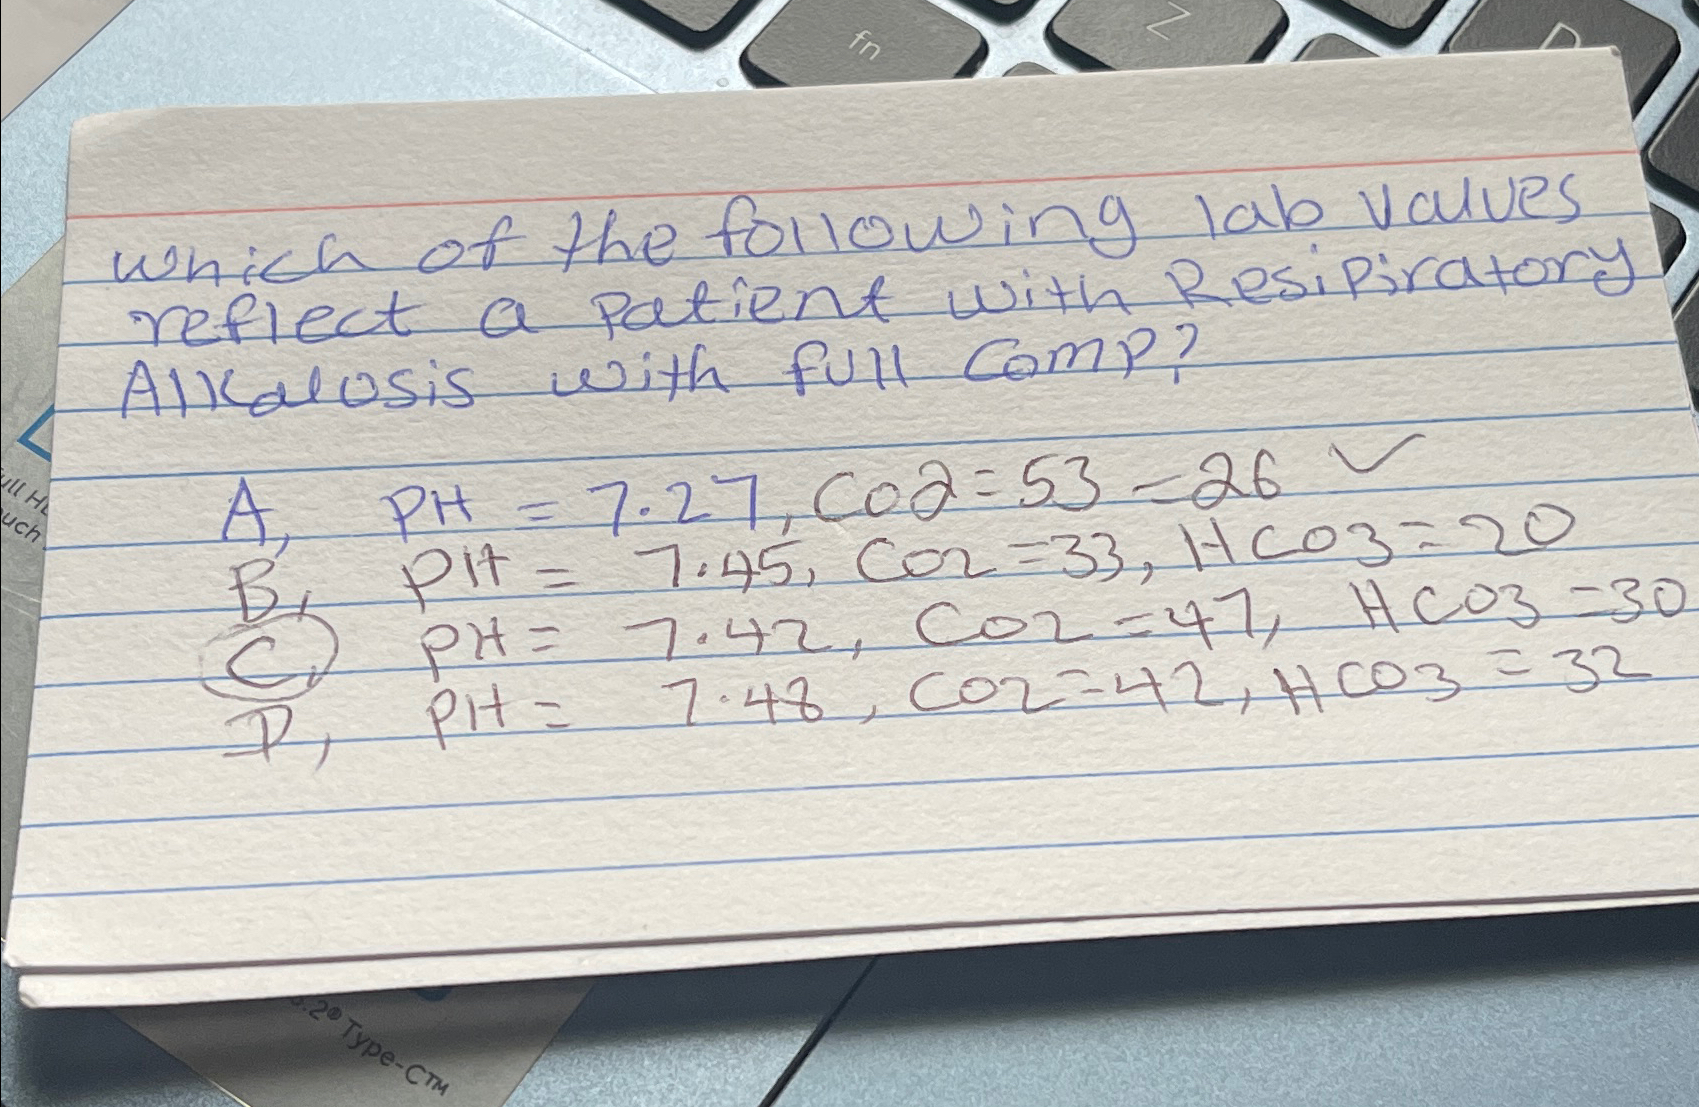 fn
Z
which of the following lab values
reflect a patient with Resipiratory
Alkalosis with full comp?
A, PH = 7.27, CO2 = 53 - 26 ✓
B, PH = 7.45, CO2 = 33, HCO3 = 20
C, PH = 7.42, CO2 = 47, HCO3 = 30
D, PH = 7.48, CO2 = 42, HCO3 = 32
.2® Type-C™